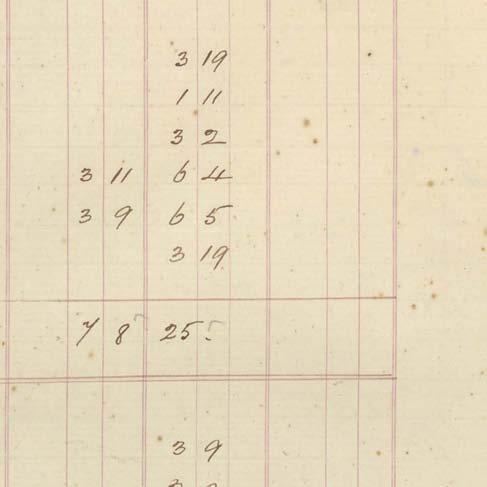 3 19
1 11
3 2
3 11 6 4
3 9 6 5
3 19
7 8 25.
3 9